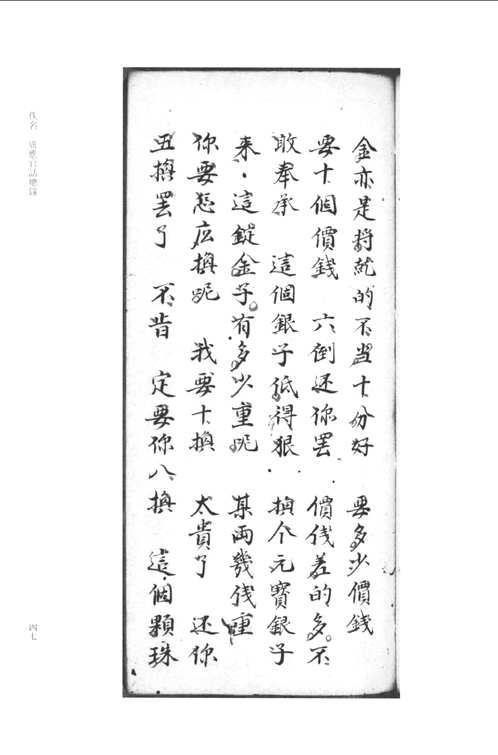 金亦是将就的不當十分好　要多少價錢
要十個價錢　六倒还你罢　價伐差的多。不
敢奉承　這個銀子低得狠　換个元寶銀子
来·這錠金子。有多少重呢　某両幾伐重
你要怎庅換呢　我要十換　太貴了　还你
五換罢了　不肯　定要你八換　這個顆珠
佚名　廣應官話總錄
四七